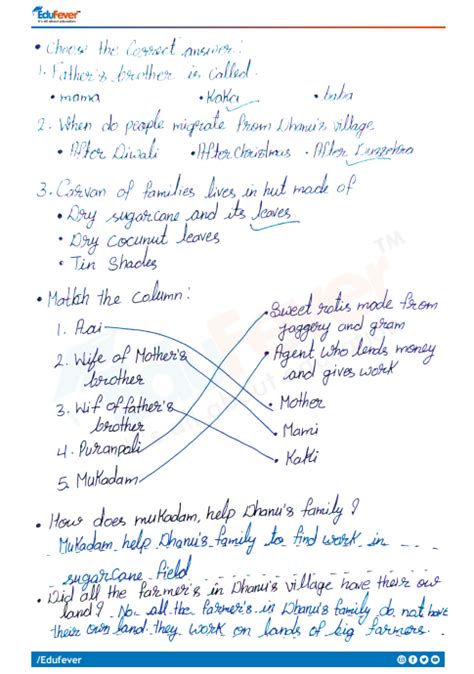 EduFever
It's all about education
• Choose the Correct answer:
1. Father's brother is called.
• mama • Kaka • baba
2. When do people migrate from Dhanu's village
• After Diwali • After Christmas • After Dussehra
3. Carvan of families lives in hut made of
• Dry sugarcane and its leaves
• Dry cocunut leaves
• Tin Shades
TM
EduFever
• Match the column:
1. Aai
2. Wife of Mother's
brother
3. Wif of father's
brother
4. Puranpali
5. Mukadam
• Sweet rotis made from
jaggery and gram
• Agent who lends money
and gives work
• Mother
• Mami
• Kaki
• How does mukadam, help Dhanu's family?
Mukadam help Dhanu's family to find work in
sugarcane field
• Did all the farmer's in Dhanu's village have their ow
land? No. all the farmer's in Dhanu's family do not have
their own land they work on lands of big farmers.
/Edufever